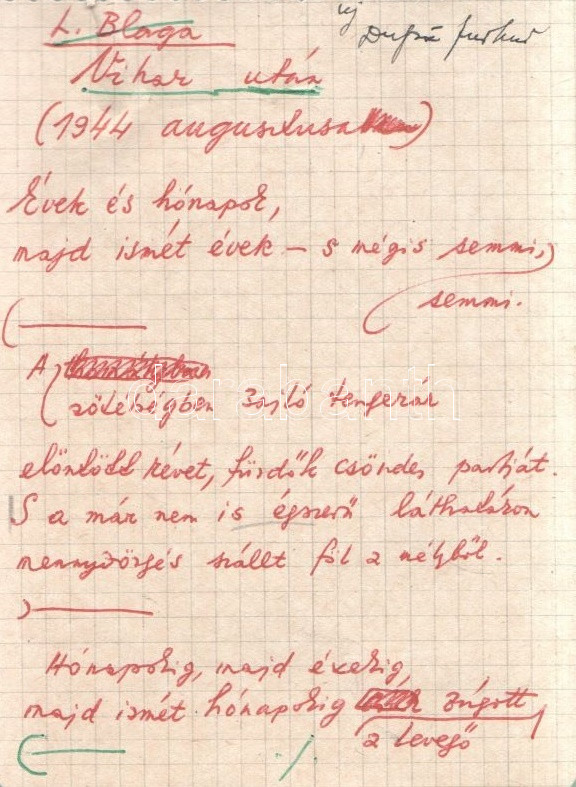 L. Blaga
Vihar után
(1944 augusztusa)
Évek és hónapok,
majd ismét évek – s mégis semmi,
semmi.
A
sötétségben zajló tenger ár
elöntött révet, fürdők csöndes partját.
S a már nem is égszerű láthatáron
mennydörgés szállt föl a mélyből.
Hónapokig, majd évekig,
majd ismét hónapokig zúgott
a levegő
darabanth